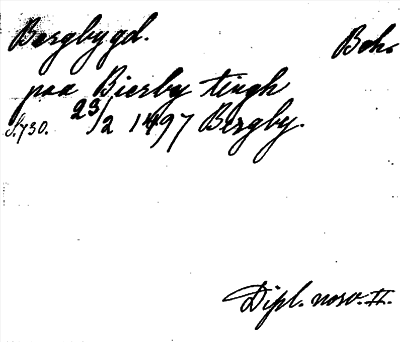 Bergbygd. Boh.
paa Bierby tingh
S.730. 23/2 1497 Bergby.
Dipl. norv. II.